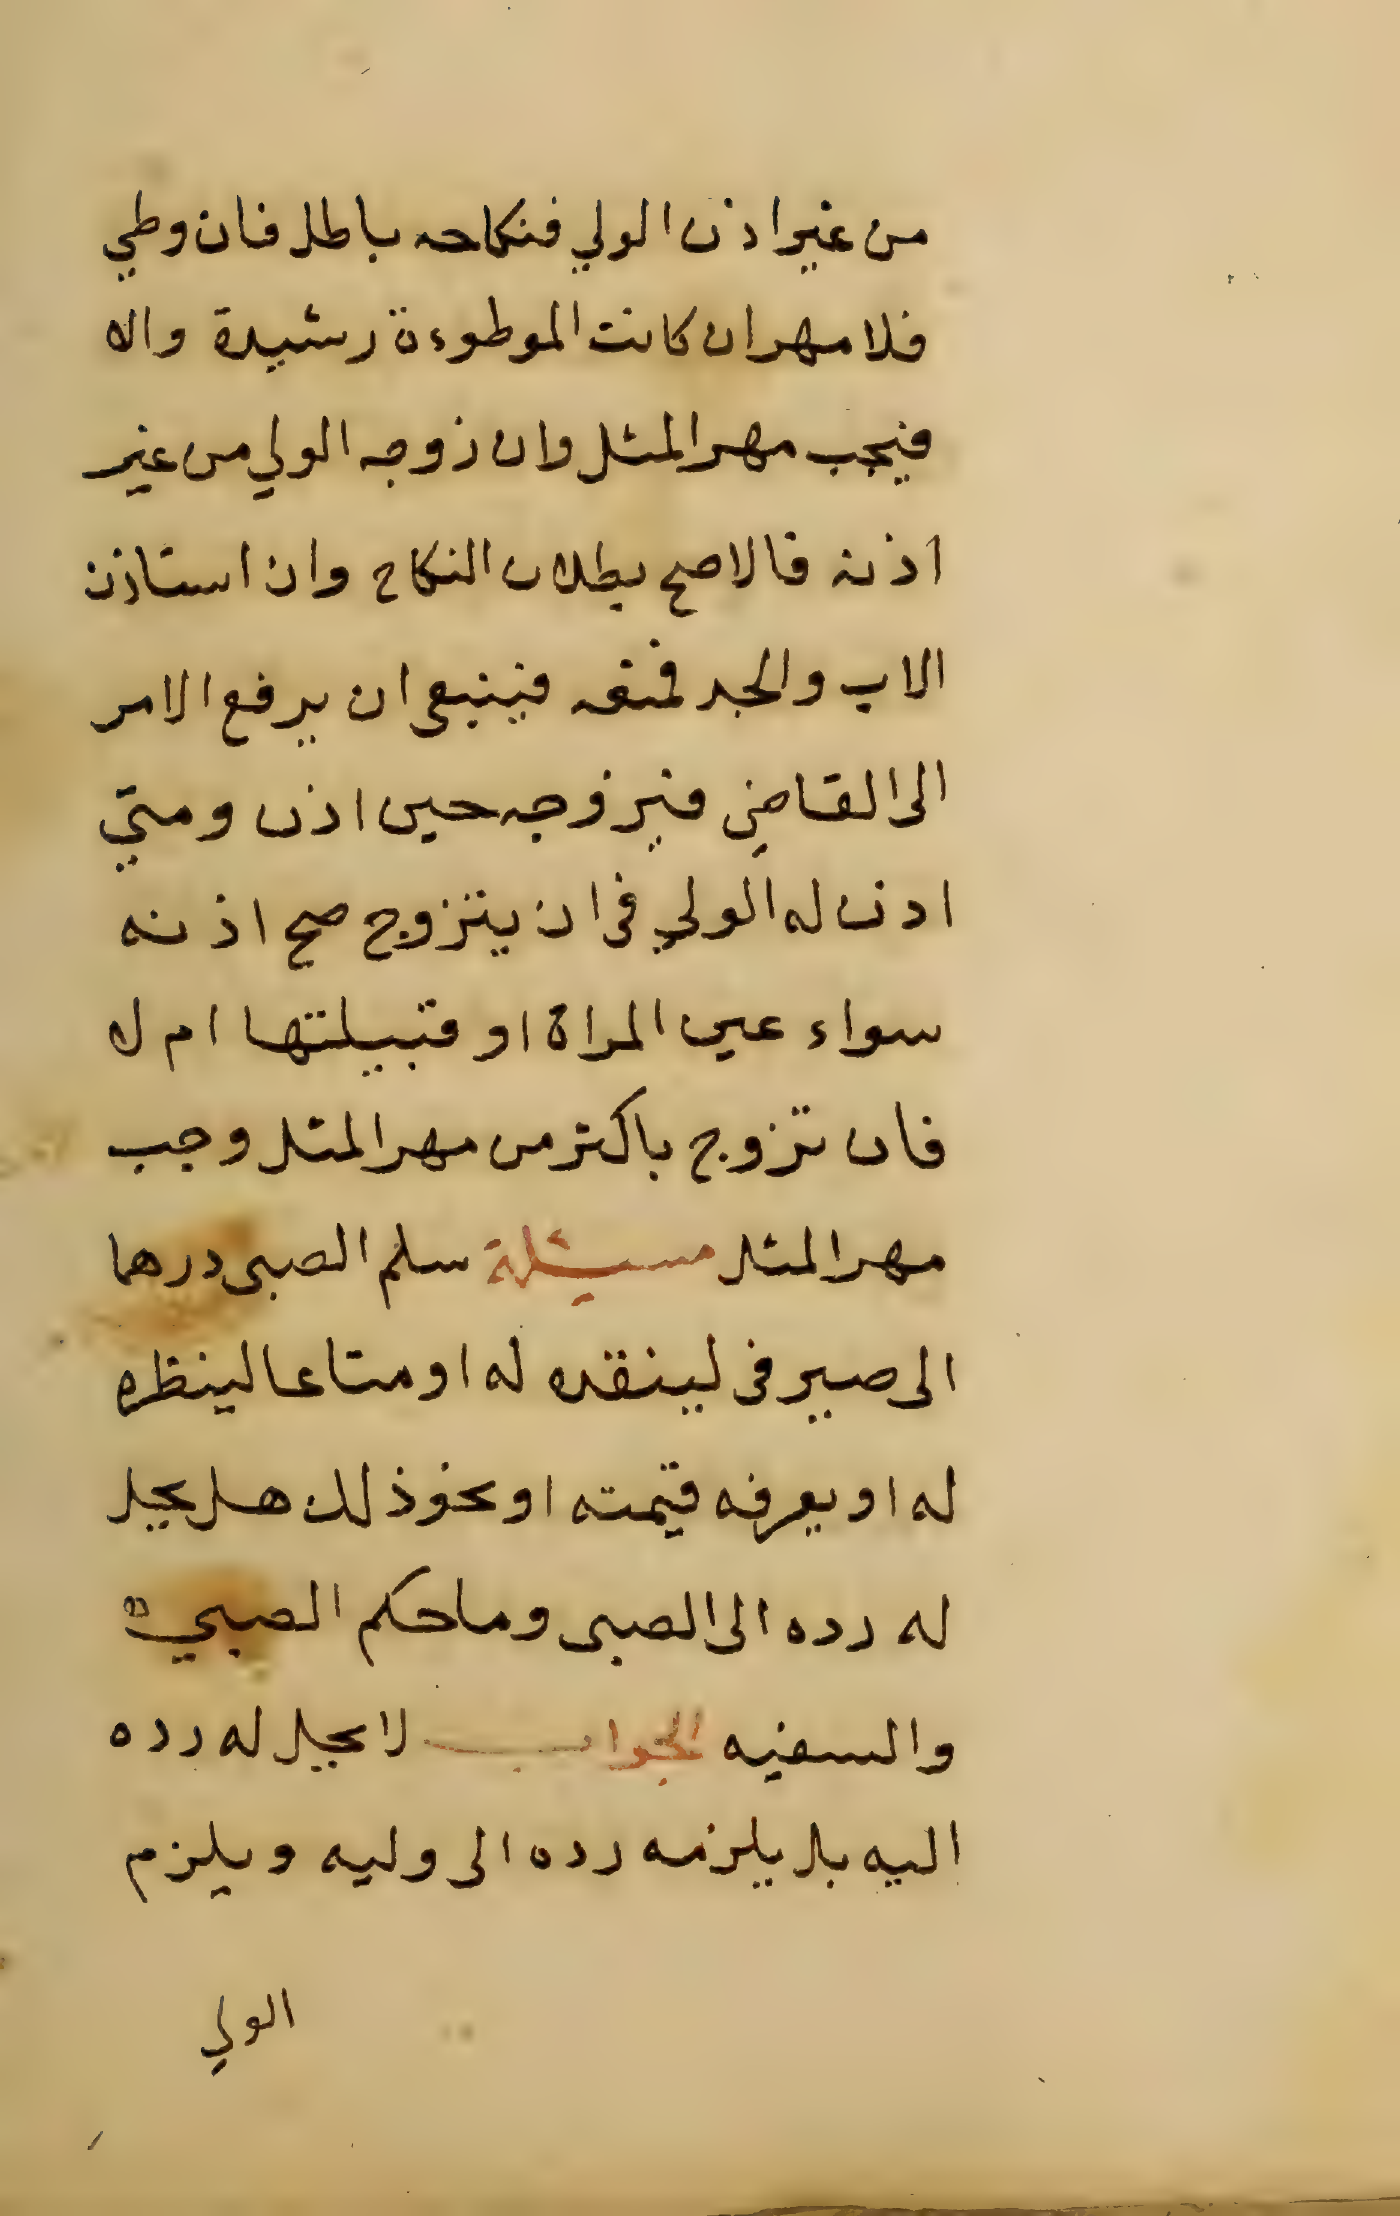 من غير اذن الولي فنكاحه باطل فان وطي
فلا مهر ان كانت الموطوءة رشيدة والا
فيجب مهر المثل وان زوجه الولي من غير
اذنه فالاصح بطلان النكاح وان استاذن
الاب والجد فمنعه فينبغى ان يرفع الامر
الى القاضي فيزوجه حين اذن ومتي
اذن له الولي في ان يتزوج صح اذنه
سواء عين المراة او قبيلتها ام لا
فان تزوج باكثر من مهر المثل وجب
مهر المثل مسئلة سلم الصبى درهما
الى صيرفى لينقده له او متاعا لينظره
له او يعرفه قيمته او نحو ذلك هل يحل
له رده الى الصبى وما حكم الصبي
والسفيه الجواب لا يحل له رده
اليه بل يلزمه رده الى وليه ويلزم
الولي